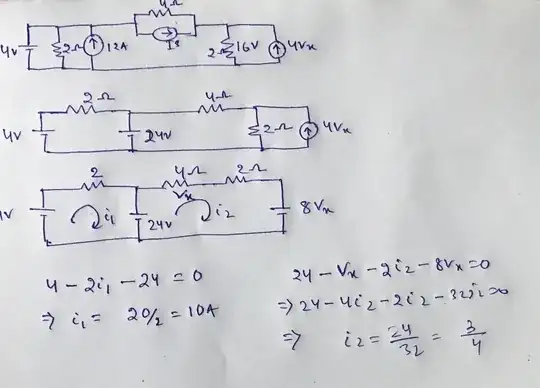 4Ω
4V 2Ω 12A Is 2Ω 16V 4Vx
2Ω 4Ω
4V 24V 2Ω 4Vx
2 4Ω 2Ω
Vx
V i1 24V i2 8Vx
4 - 2i1 - 24 = 0
⇒ i1 = 20/2 = 10A
24 - Vx - 2i2 - 8Vx = 0
⇒ 24 - 4i2 - 2i2 - 32i2 = 0
⇒ i2 = 24/32 = 3/4